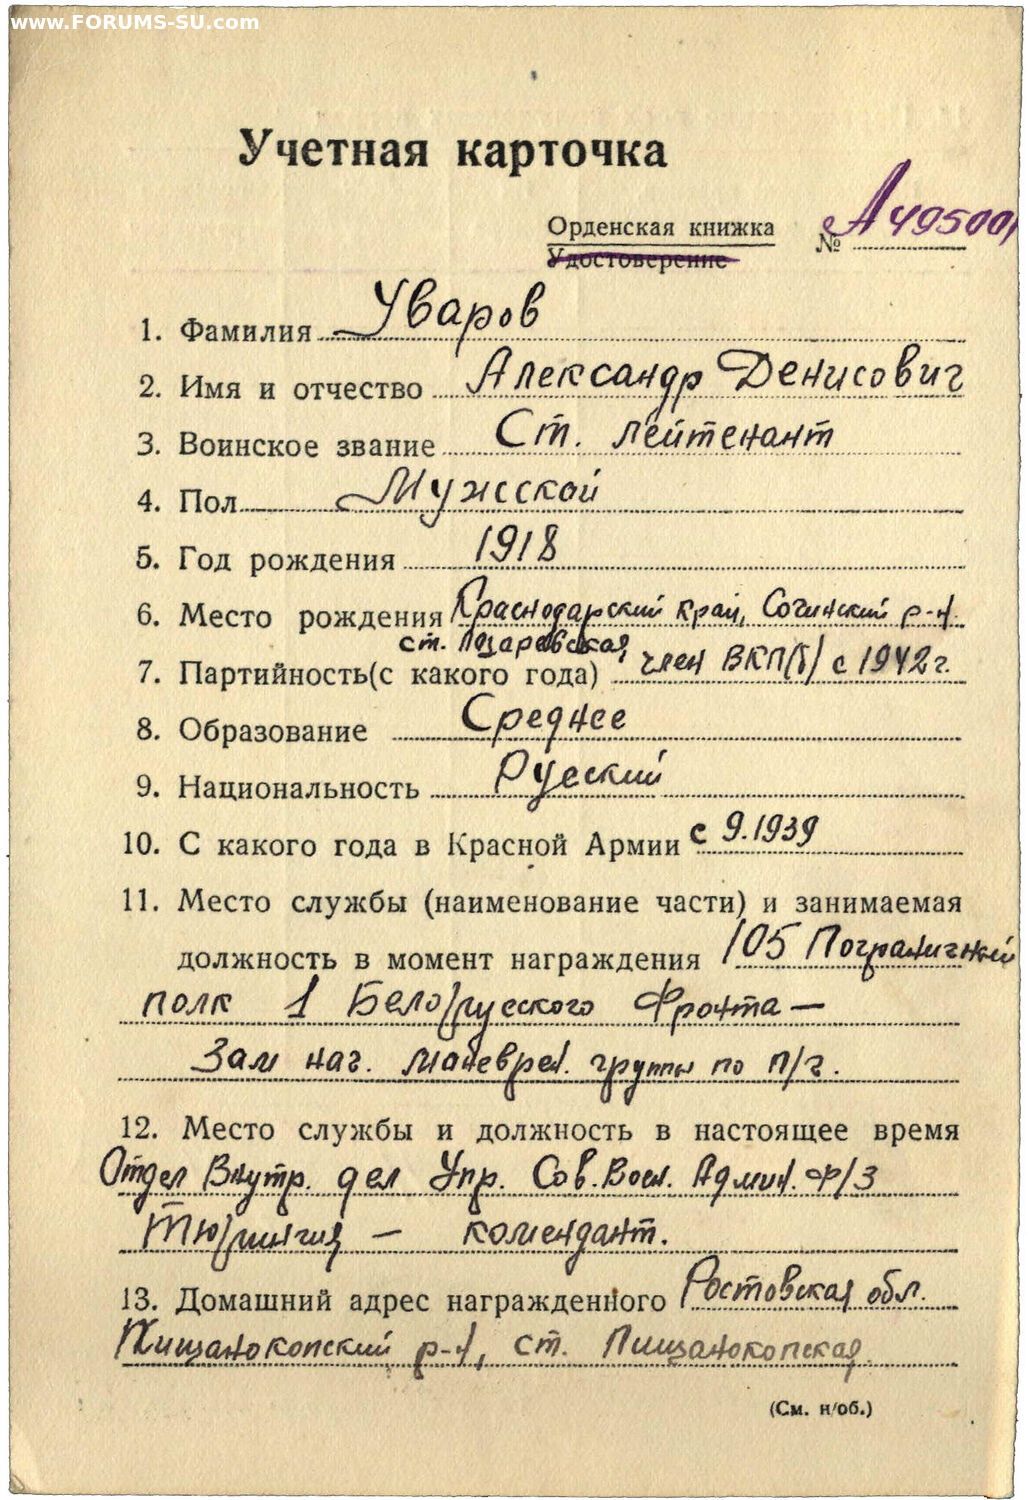 www.FORUMS-SU.com
Учетная карточка
Орденская книжка
Удостоверение
№ А 495001
1. Фамилия Уваров
2. Имя и отчество Александр Денисович
3. Воинское звание Ст. лейтенант
4. Пол Мужской
5. Год рождения 1918
6. Место рождения Краснодарский край, Сочинский р-н.
ст. Лазаревская
7. Партийность(с какого года) член ВКП(б) с 1942 г.
8. Образование Среднее
9. Национальность Русский
10. С какого года в Красной Армии с 9.1939
11. Место службы (наименование части) и занимаемая
должность в момент награждения 105 Пограничный
полк 1 Белорусского Фронта —
Зам нач. маневрен. группы по п/ч.
12. Место службы и должность в настоящее время
Отдел Внутр. дел Упр. Сов. Воен. Админ. Ф/З
Тюрингия — комендант.
13. Домашний адрес награжденного Ростовская обл.
Пищанокопский р-н, ст. Пищанокопская
(См. н/об.)